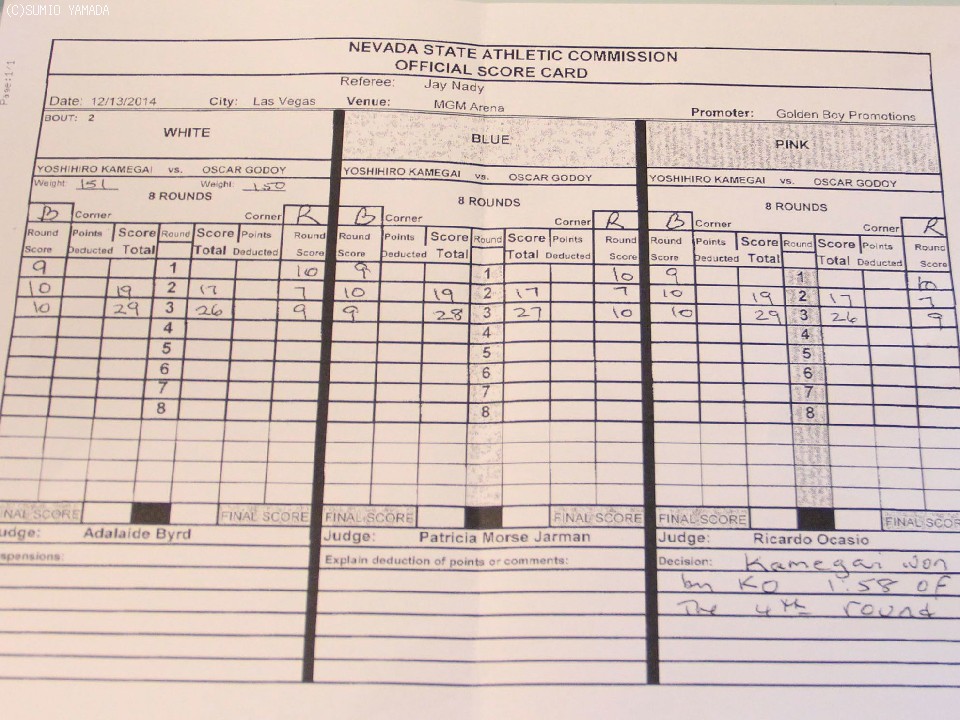 (C)SUMIO YAMADA
Page:1/1
NEVADA STATE ATHLETIC COMMISSION
OFFICIAL SCORE CARD
Referee: Jay Nady
Date: 12/13/2014 City: Las Vegas Venue: MGM Arena Promoter: Golden Boy Promotions
BOUT: 2
WHITE BLUE PINK
YOSHIHIRO KAMEGAI vs. OSCAR GODOY YOSHIHIRO KAMEGAI vs. OSCAR GODOY YOSHIHIRO KAMEGAI vs. OSCAR GODOY
Weight: 151 Weight: 150
8 ROUNDS 8 ROUNDS 8 ROUNDS
B Corner Corner R B Corner Corner R B Corner Corner R
Round Points Score Round Score Points Round Round Points Score Round Score Points Round Round Points Score Round Score Points Round
Score Deducted Total Total Deducted Score Score Deducted Total Total Deducted Score Score Deducted Total Total Deducted Score
9 1 10 9 1 10 9 1 10
10 19 2 17 7 10 19 2 17 7 10 19 2 17 7
10 29 3 26 9 9 28 3 27 10 10 29 3 26 9
4 4 4
5 5 5
6 6 6
7 7 7
8 8 8
INAL SCORE FINAL SCORE FINAL SCORE FINAL SCORE FINAL SCORE FINAL SCOR
udge: Adalaide Byrd Judge: Patricia Morse Jarman Judge: Ricardo Ocasio
spensions: Explain deduction of points or comments: Decision: Kamegai won
by KO 1:58 of
The 4th round